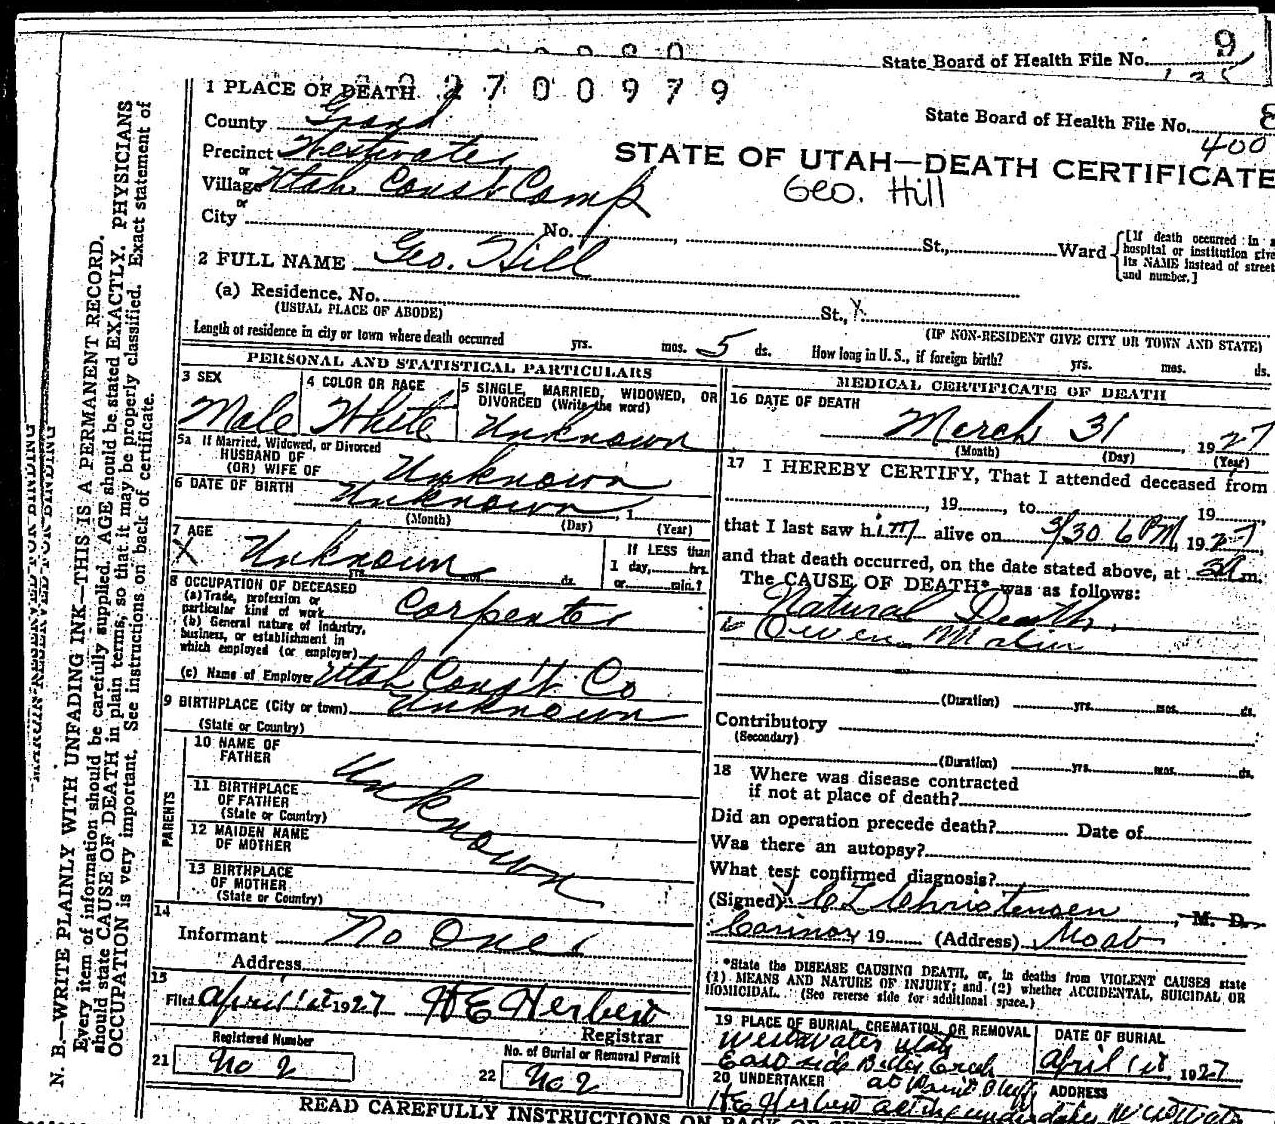 State Board of Health File No. 9
State Board of Health File No. 8
400
2700979
1 PLACE OF DEATH
County Grand
Precinct Westwater
or
Village Utah Const Camp
or
City No. , St., Ward
STATE OF UTAH—DEATH CERTIFICATE
Geo. Hill
[If death occurred in a
hospital or institution give
its NAME instead of street
and number.]
2 FULL NAME Geo. Hill
(a) Residence. No. St., X
(USUAL PLACE OF ABODE) (IF NON-RESIDENT GIVE CITY OR TOWN AND STATE)
Length of residence in city or town where death occurred yrs. mos. 5 ds. How long in U. S., if foreign birth? yrs. mos. ds.
PERSONAL AND STATISTICAL PARTICULARS
3 SEX
Male
4 COLOR OR RACE
White
5 SINGLE, MARRIED, WIDOWED, OR
DIVORCED (Write the word)
Unknown
5a If Married, Widowed, or Divorced
HUSBAND OF
(OR) WIFE OF Unknown
6 DATE OF BIRTH Unknown , 1
(Month) (Day) (Year)
7 AGE
X Unknown
yrs. mos. ds.
If LESS than
1 day, hrs.
or min.?
8 OCCUPATION OF DECEASED
(a) Trade, profession or
particular kind of work Carpenter
(b) General nature of industry,
business, or establishment in
which employed (or employer)
(c) Name of Employer Utah Const. Co
9 BIRTHPLACE (City or town) Unknown
(State or Country)
PARENTS
10 NAME OF
FATHER
11 BIRTHPLACE
OF FATHER
(State or Country)
12 MAIDEN NAME
OF MOTHER
13 BIRTHPLACE
OF MOTHER
(State or Country)
Unknown
14
Informant No One
Address
15
Filed April 1st 1927 H E Herbert
Registrar
21 Registered Number
No 2
22 No. of Burial or Removal Permit
No 2
MEDICAL CERTIFICATE OF DEATH
16 DATE OF DEATH
March 31, 1927
(Month) (Day) (Year)
17 I HEREBY CERTIFY, That I attended deceased from
, 19 , to 19
that I last saw him alive on 3/30 6 PM, 1927,
and that death occurred, on the date stated above, at m.
The CAUSE OF DEATH* was as follows:
Natural Death
Owen Malin
(Duration) yrs. mos. ds.
Contributory
(Secondary)
(Duration) yrs. mos. ds.
18 Where was disease contracted
if not at place of death?
Did an operation precede death? Date of
Was there an autopsy?
What test confirmed diagnosis?
(Signed) Christensen, M. D.
19 (Address) Moab
*State the DISEASE CAUSING DEATH, or, in deaths from VIOLENT CAUSES state
(1) MEANS AND NATURE OF INJURY; and (2) whether ACCIDENTAL, SUICIDAL OR
HOMICIDAL. (See reverse side for additional space.)
19 PLACE OF BURIAL, CREMATION, OR REMOVAL
Westwater Utah
East side
DATE OF BURIAL
April 1st, 1927
20 UNDERTAKER
ADDRESS
H E Herbert acting undertaker
READ CAREFULLY INSTRUCTIONS ON BACK OF
MARGIN RESERVED FOR BINDING
N. B.—WRITE PLAINLY WITH UNFADING INK—THIS IS A PERMANENT RECORD.
Every item of information should be carefully supplied. AGE should be stated EXACTLY. PHYSICIANS
should state CAUSE OF DEATH in plain terms, so that it may be properly classified. Exact statement of
OCCUPATION is very important. See instructions on back of certificate.